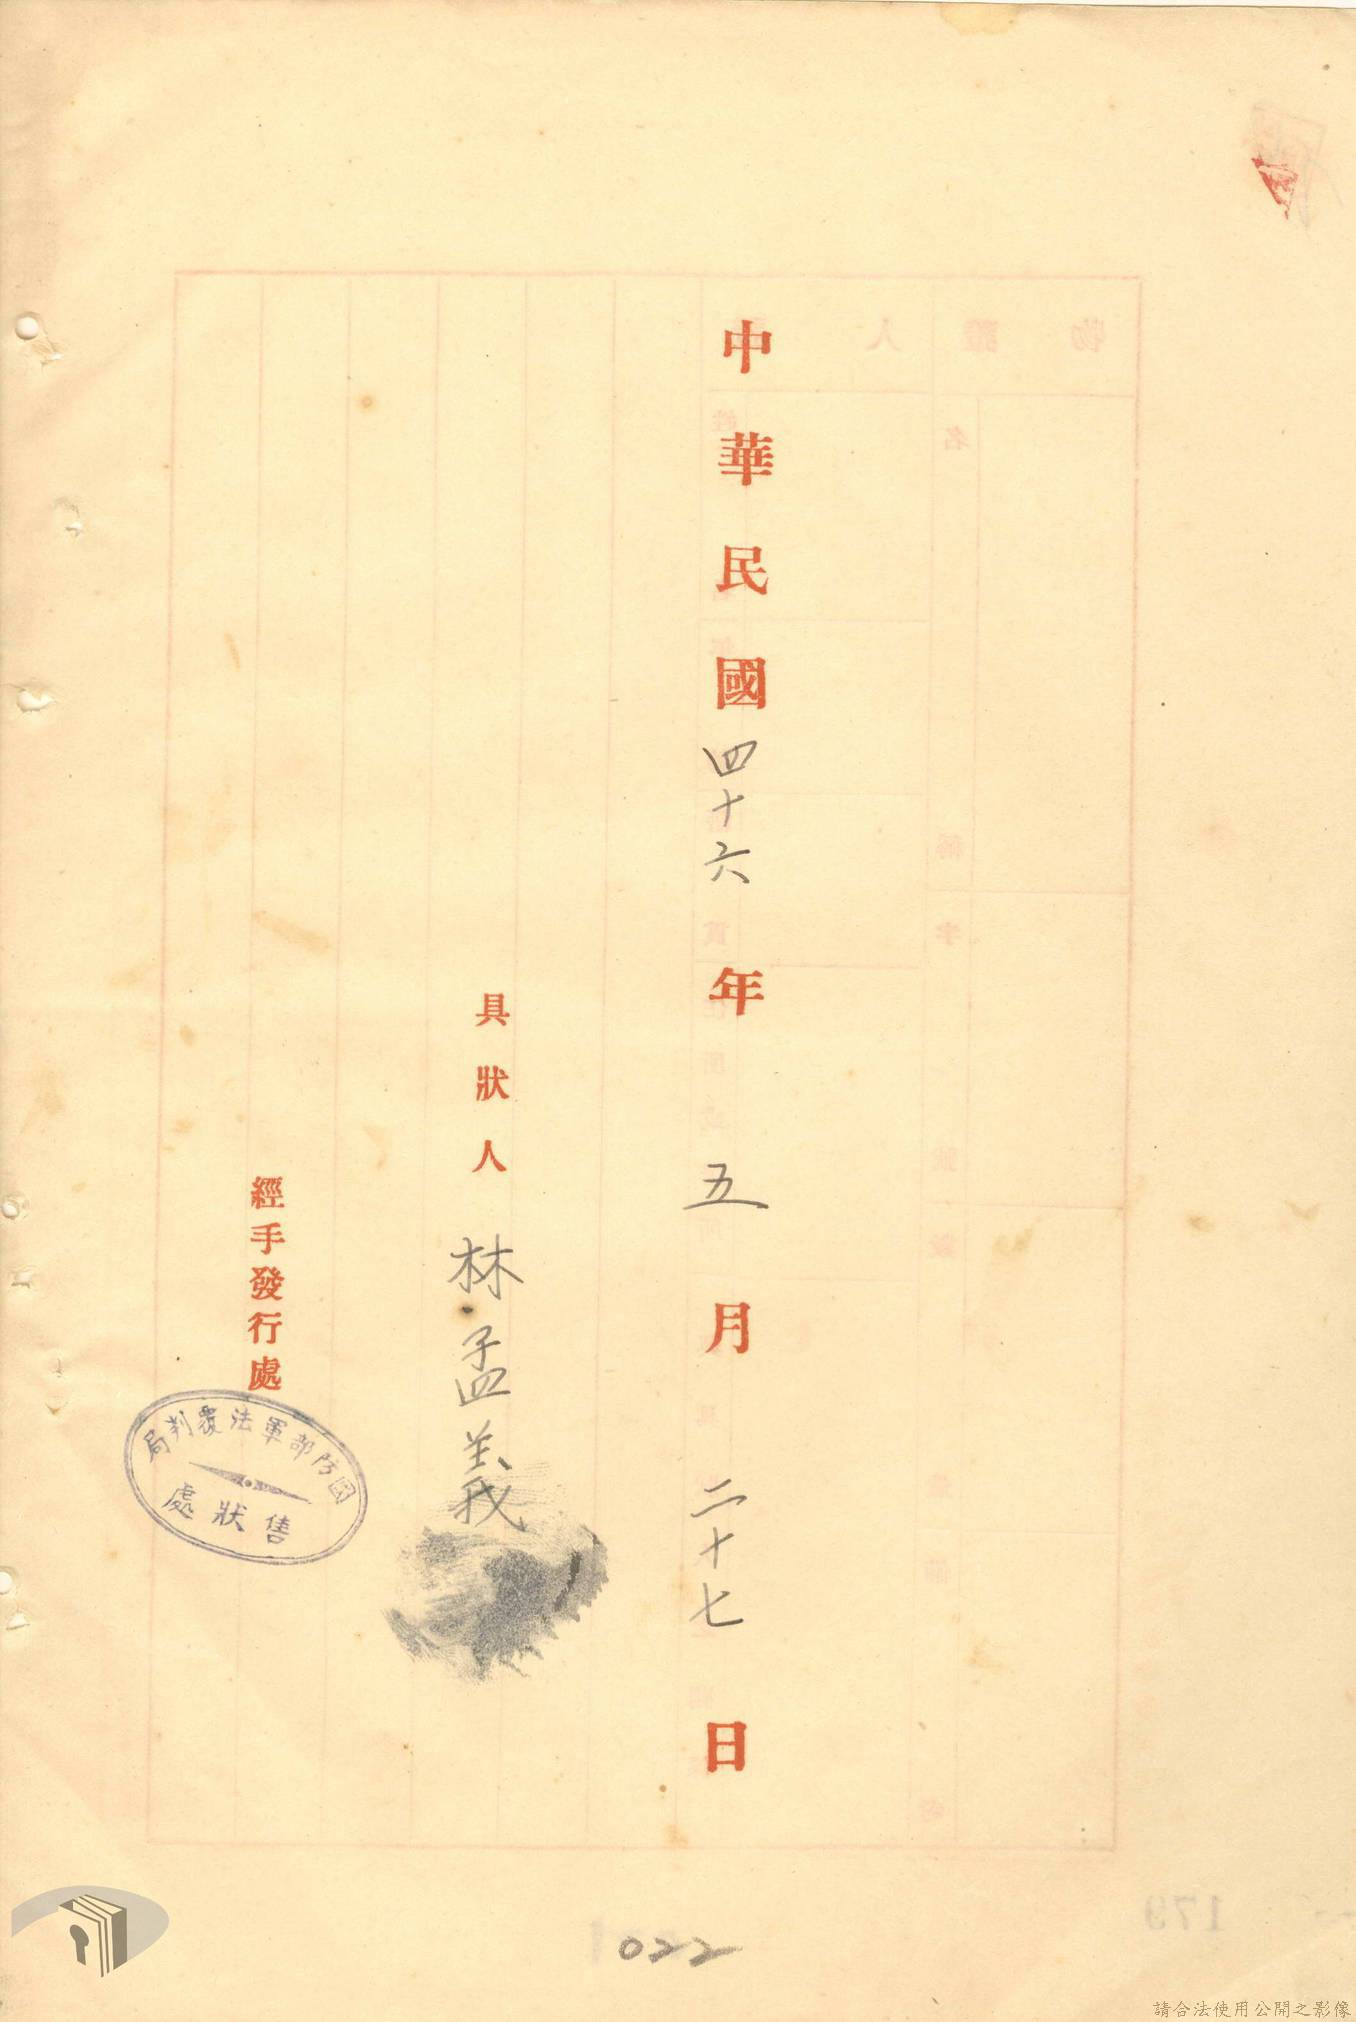 中華民國四十六年五月二十七日
具狀人 林孟義
經手發行處
國防部軍法覆判局
售狀處
022
179
請合法使用公開之影像